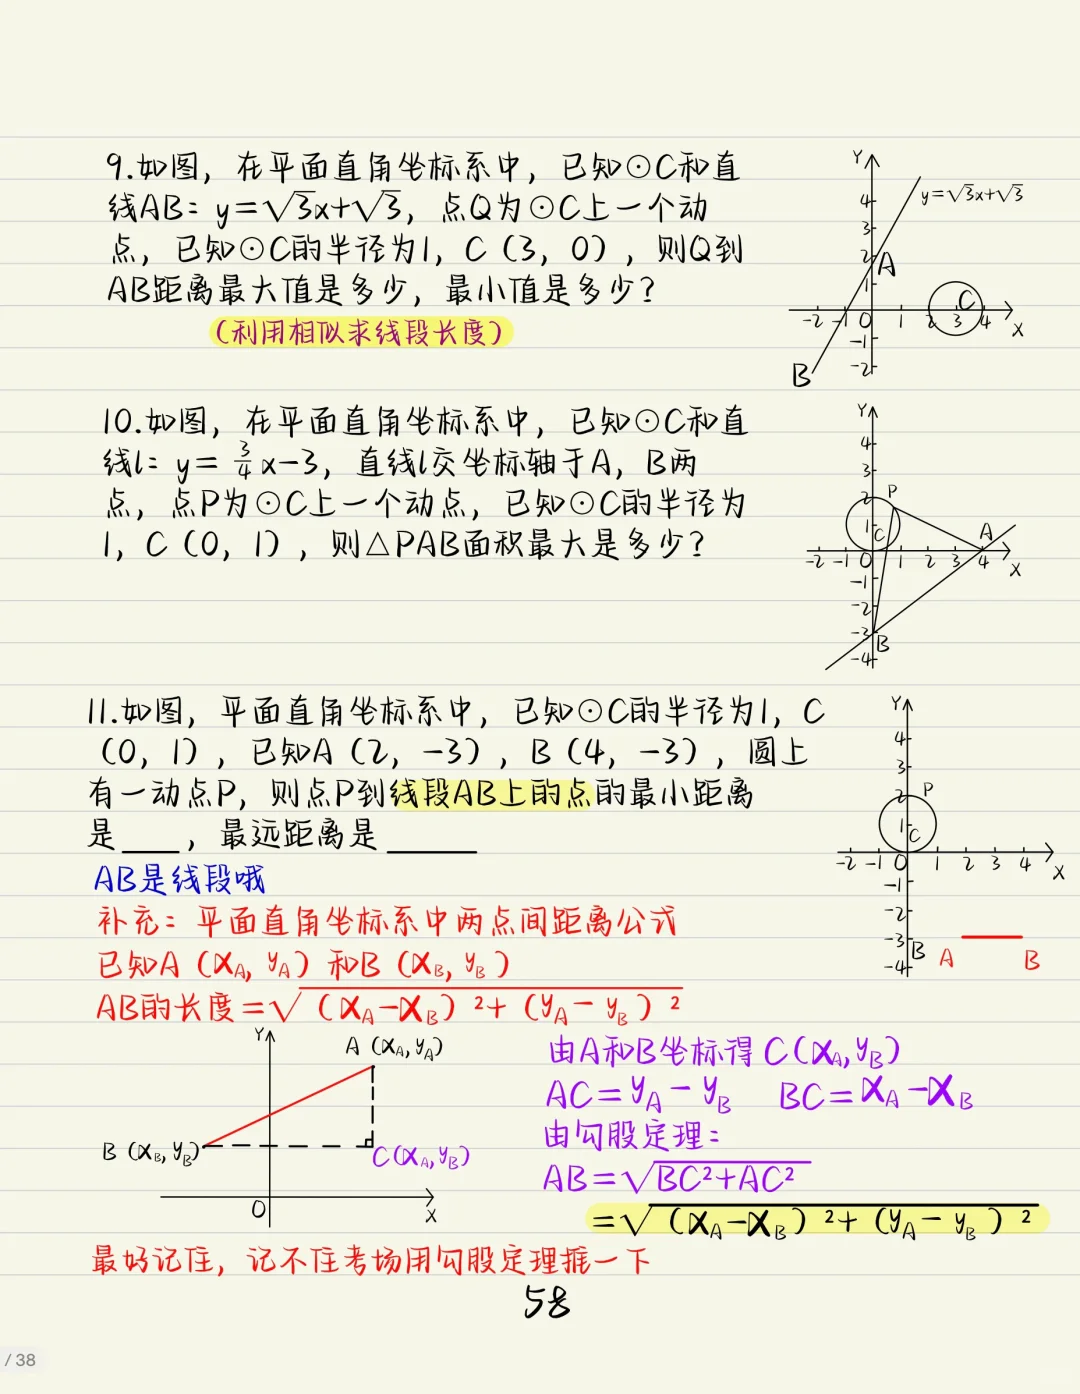 9.如图，在平面直角坐标系中，已知⊙C和直
线AB：y=√3x+√3，点Q为⊙C上一个动
点，已知⊙C的半径为1，C（3，0），则Q到
AB距离最大值是多少，最小值是多少？
（利用相似求线段长度）
Y
y=√3x+√3
4
3
2
A
1
C
-2 -1 0 1 2 3 4
X
-1
B
-2
10.如图，在平面直角坐标系中，已知⊙C和直
线l：y=3/4x-3，直线l交坐标轴于A，B两
点，点P为⊙C上一个动点，已知⊙C的半径为
1，C（0，1），则△PAB面积最大是多少？
Y
4
3
2 P
1 C
A
-2 -1 0 1 2 3 4
X
-1
-2
-3
B
-4
11.如图，平面直角坐标系中，已知⊙C的半径为1，C
（0，1），已知A（2，-3），B（4，-3），圆上
有一动点P，则点P到线段AB上的点的最小距离
是____，最远距离是______
Y
4
3
2 P
1
C
-2 -1 0 1 2 3 4
X
-1
-2
-3
B A B
-4
AB是线段哦
补充：平面直角坐标系中两点间距离公式
已知A（XA，yA）和B（XB，yB）
AB的长度=√（XA-XB）²+（yA-yB）²
Y
A（XA，yA）
B（XB，yB）
C（XA，yB）
0
X
由A和B坐标得C（XA，yB）
AC=yA-yB BC=XA-XB
由勾股定理：
AB=√BC²+AC²
=√（XA-XB）²+（yA-yB）²
最好记住，记不住考场用勾股定理推一下
58
/ 38